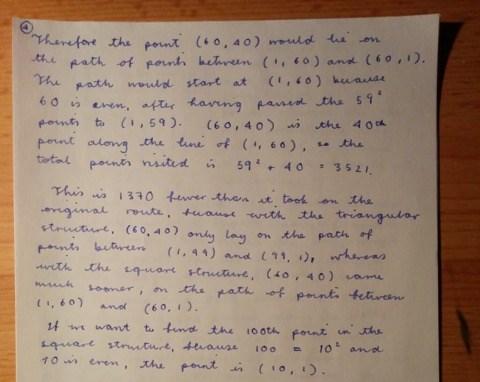 ④
Therefore the point (60,40) would lie on
the path of points between (1,60) and (60,1).
The path would start at (1,60) because
60 is even, after having passed the 59²
points to (1,59). (60,40) is the 40th
point along the line of (1,60), so the
total points visited is 59² + 40 = 3521.
This is 1370 fewer than it took on the
original route, because with the triangular
structure, (60,40) only lay on the path of
points between (1,99) and (99,1), whereas
with the square structure, (60,40) came
much sooner, on the path of points between
(1,60) and (60,1).
If we want to find the 100th point in the
square structure, because 100 = 10² and
10 is even, the point is (10,1).